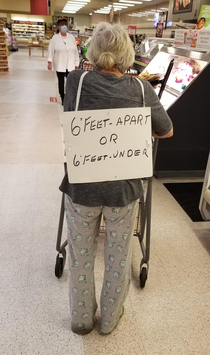 6'FEET-APART
OR
6'FEET-UNDER